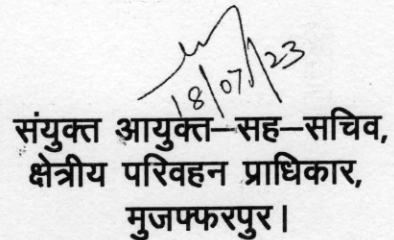 18/07/23
संयुक्त आयुक्त–सह–सचिव,
क्षेत्रीय परिवहन प्राधिकार,
मुजफ्फरपुर।